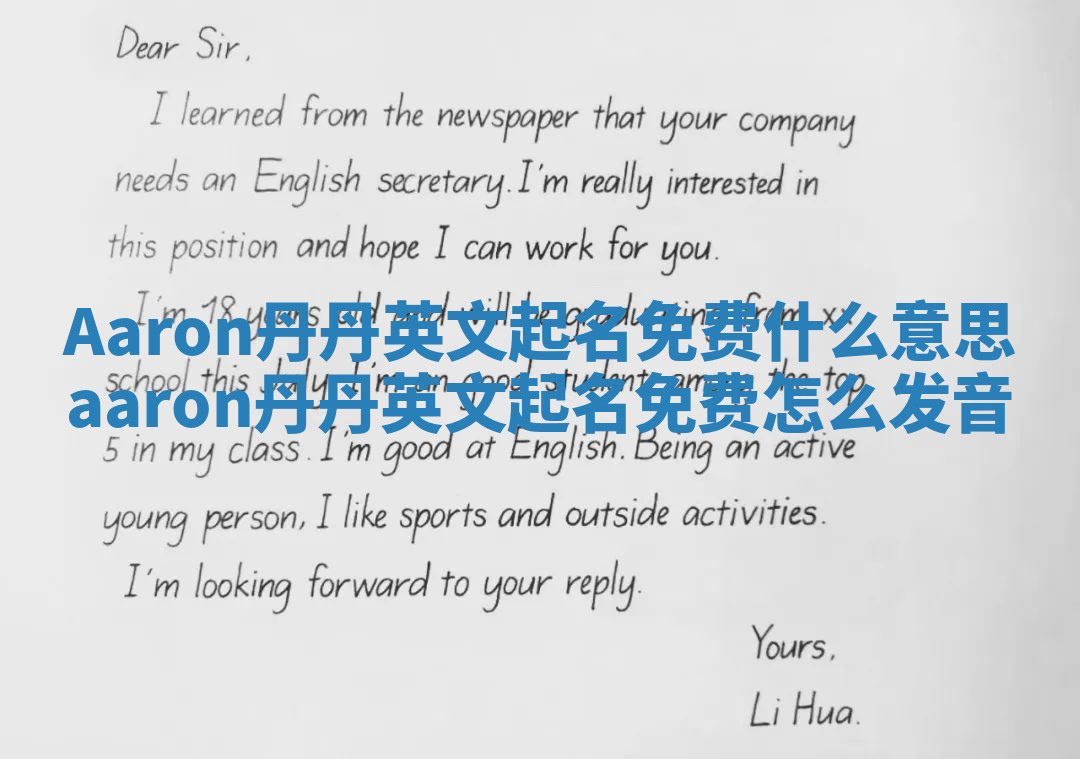 Dear Sir,
I learned from the newspaper that your company
needs an English secretary. I'm really interested in
this position and hope I can work for you.
I'm 18 years old and will be graduating from xx
Aaron丹丹英文起名免费什么意思
school this July. I'm an good student, among the top
aaron丹丹英文起名免费怎么发音
5 in my class. I'm good at English. Being an active
young person, I like sports and outside activities.
I'm looking forward to your reply.
Yours,
Li Hua.